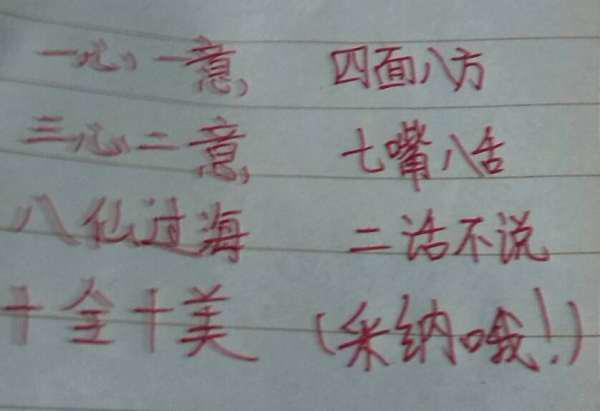 一心一意 四面八方
三心二意 七嘴八舌
八仙过海 二话不说
十全十美 (采纳哦!)